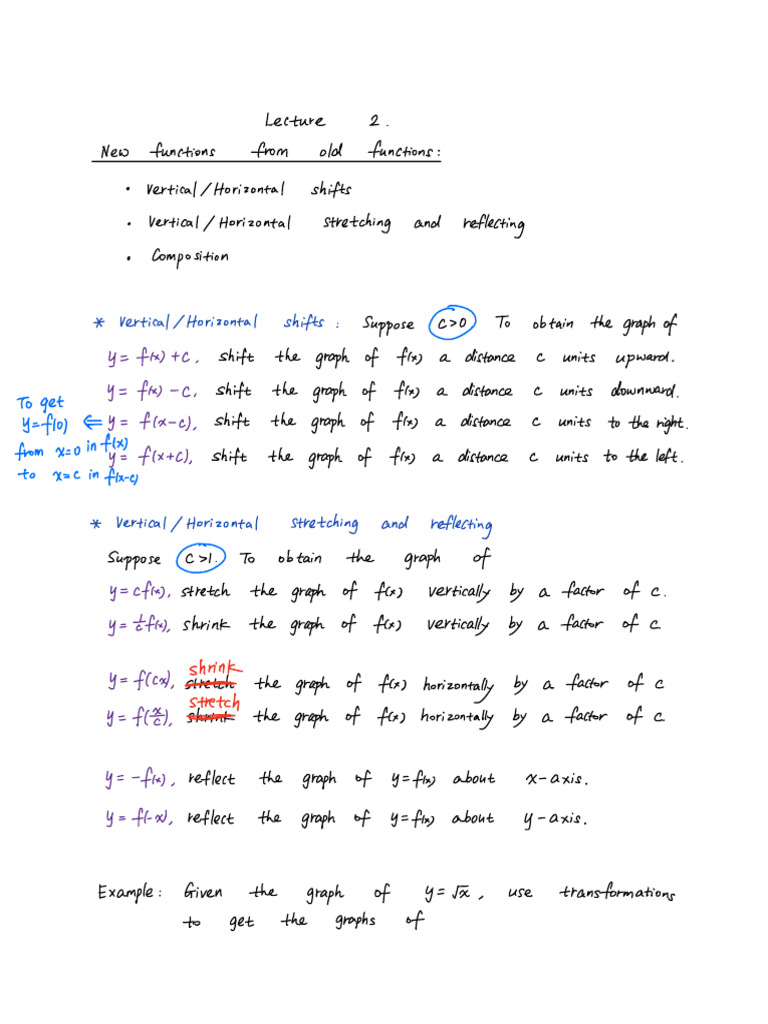 Lecture 2.
New functions from old functions:
• Vertical/Horizontal shifts
• Vertical/Horizontal stretching and reflecting
• Composition
* Vertical/Horizontal shifts: Suppose c>0 To obtain the graph of
y = f(x) + c, shift the graph of f(x) a distance c units upward.
y = f(x) - c, shift the graph of f(x) a distance c units downward.
To get
y=f(0) ⇐ y = f(x-c), shift the graph of f(x) a distance c units to the right.
from x=0 in f(x)
y = f(x+c), shift the graph of f(x) a distance c units to the left.
to x=c in f(x-c)
* Vertical/Horizontal stretching and reflecting
Suppose c>1. To obtain the graph of
y = cf(x), stretch the graph of f(x) vertically by a factor of c.
y = 1/c f(x), shrink the graph of f(x) vertically by a factor of c
shrink
y = f(cx), stretch the graph of f(x) horizontally by a factor of c
stretch
y = f(x/c), shrink the graph of f(x) horizontally by a factor of c
y = -f(x), reflect the graph of y=f(x) about x-axis.
y = f(-x), reflect the graph of y=f(x) about y-axis.
Example: Given the graph of y=√x, use transformations
to get the graphs of